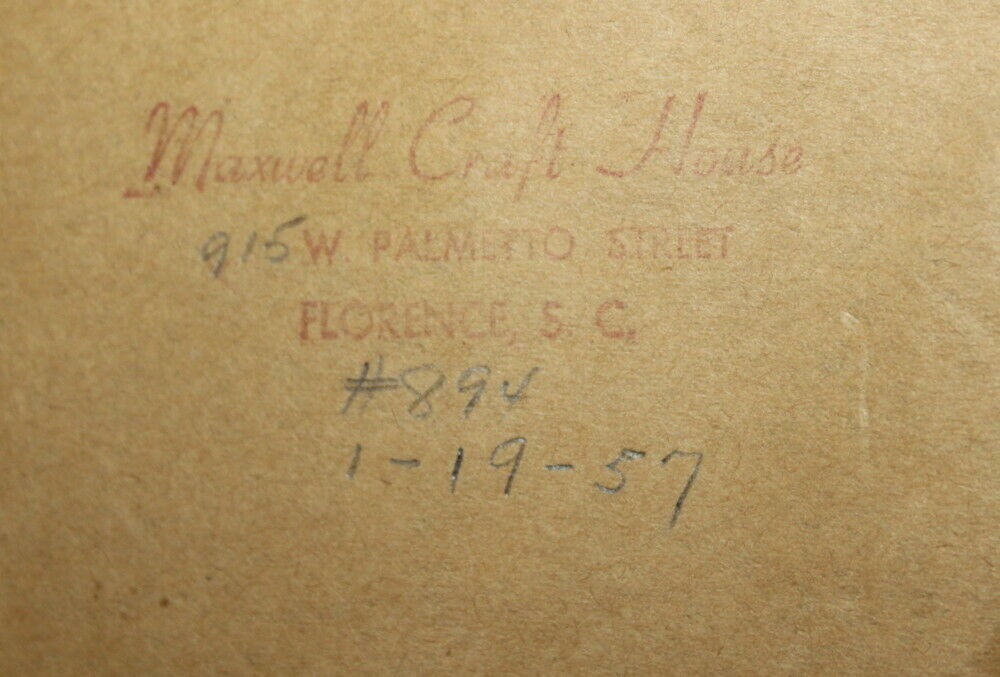 Maxwell Craft House
915 W. PALMETTO STREET
FLORENCE, S. C.
#894
1-19-57